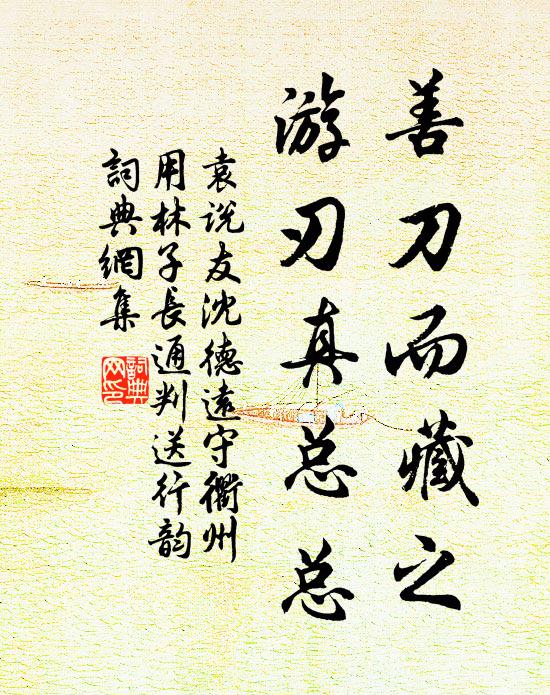 善刀而藏之
游刃真总总
袁说友沈德远守衢州
用林子长通判送行韵
词典網集
詞典網印